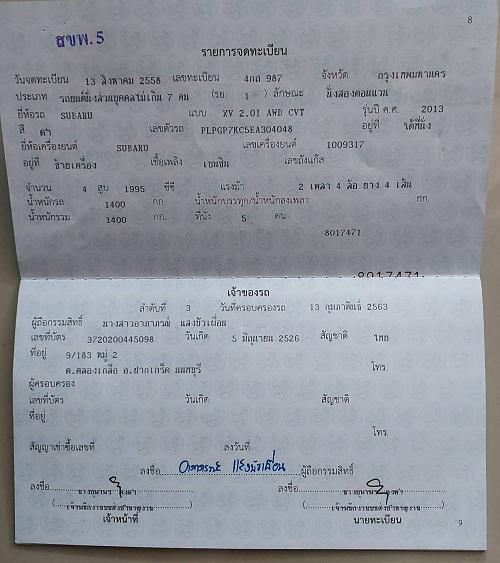 8
สขพ.5
รายการจดทะเบียน
วันจดทะเบียน 13 สิงหาคม 2558 เลขทะเบียน 4กถ 987 จังหวัด กรุงเทพมหานคร
ประเภท รถยนต์นั่งส่วนบุคคลไม่เกิน 7 คน (รย. 1 ) ลักษณะ นั่งสองตอนแวน
ยี่ห้อรถ SUBARU แบบ XV 2.0I AWD CVT รุ่นปี ค.ศ. 2013
สี ดำ เลขตัวรถ PLPGP7KC5EA304048 อยู่ที่ ใต้ที่นั่ง
ยี่ห้อเครื่องยนต์ SUBARU เลขเครื่องยนต์ 1009317
อยู่ที่ ซ้ายเครื่อง เชื้อเพลิง เบนซิน เลขถังแก๊ส
จำนวน 4 สูบ 1995 ซีซี แรงม้า 2 เพลา 4 ล้อ ยาง 4 เส้น
น้ำหนักรถ 1400 กก. น้ำหนักบรรทุก/น้ำหนักลงเพลา กก.
น้ำหนักรวม 1400 กก. ที่นั่ง 5 คน
8017471
8017471
เจ้าของรถ
ลำดับที่ 3 วันที่ครอบครองรถ 13 กุมภาพันธ์ 2563
ผู้ถือกรรมสิทธิ์ นางสาวอาภาภรณ์
เลขที่บัตร 3720200445098 วันเกิด 5 มิถุนายน 2526 สัญชาติ ไทย
ที่อยู่ 9/183 หมู่ 2 โทร.
ต.คลองเกลือ อ.ปากเกร็ด นนทบุรี
ผู้ครอบครอง
เลขที่บัตร วันเกิด สัญชาติ
ที่อยู่
โทร.
สัญญาเช่าซื้อเลขที่ ลงวันที่
ลงชื่อ ผู้ถือกรรมสิทธิ์
ลงชื่อ ลงชื่อ
(เจ้าพนักงานขนส่งชำนาญงาน) (เจ้าพนักงานขนส่งชำนาญงาน)
เจ้าหน้าที่ นายทะเบียน
9